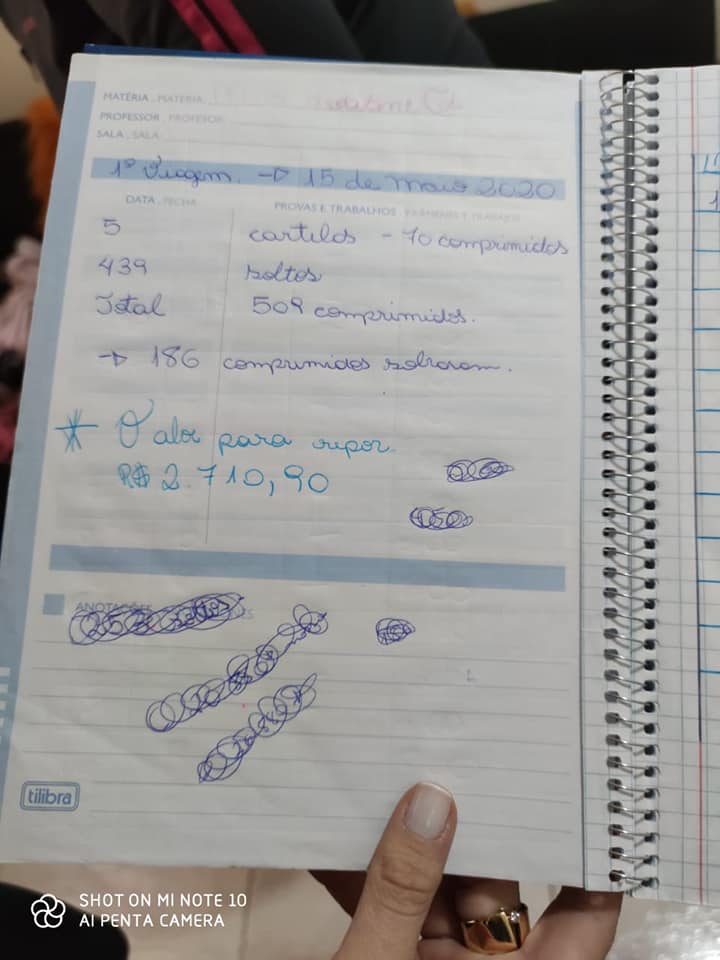 MATÉRIA . MATERIA
PROFESSOR . PROFESOR
SALA . SALA
1º Viagem. → 15 de maio 2020
DATA . FECHA PROVAS E TRABALHOS .
5 cartelas - 70 comprimidos
439 soltos
Total 509 comprimidos.
→ 186 comprimidos sobraram.
* Valor para repor.
R$ 2.710,90
ANOTAÇÕES
tilibra
SHOT ON MI NOTE 10
AI PENTA CAMERA